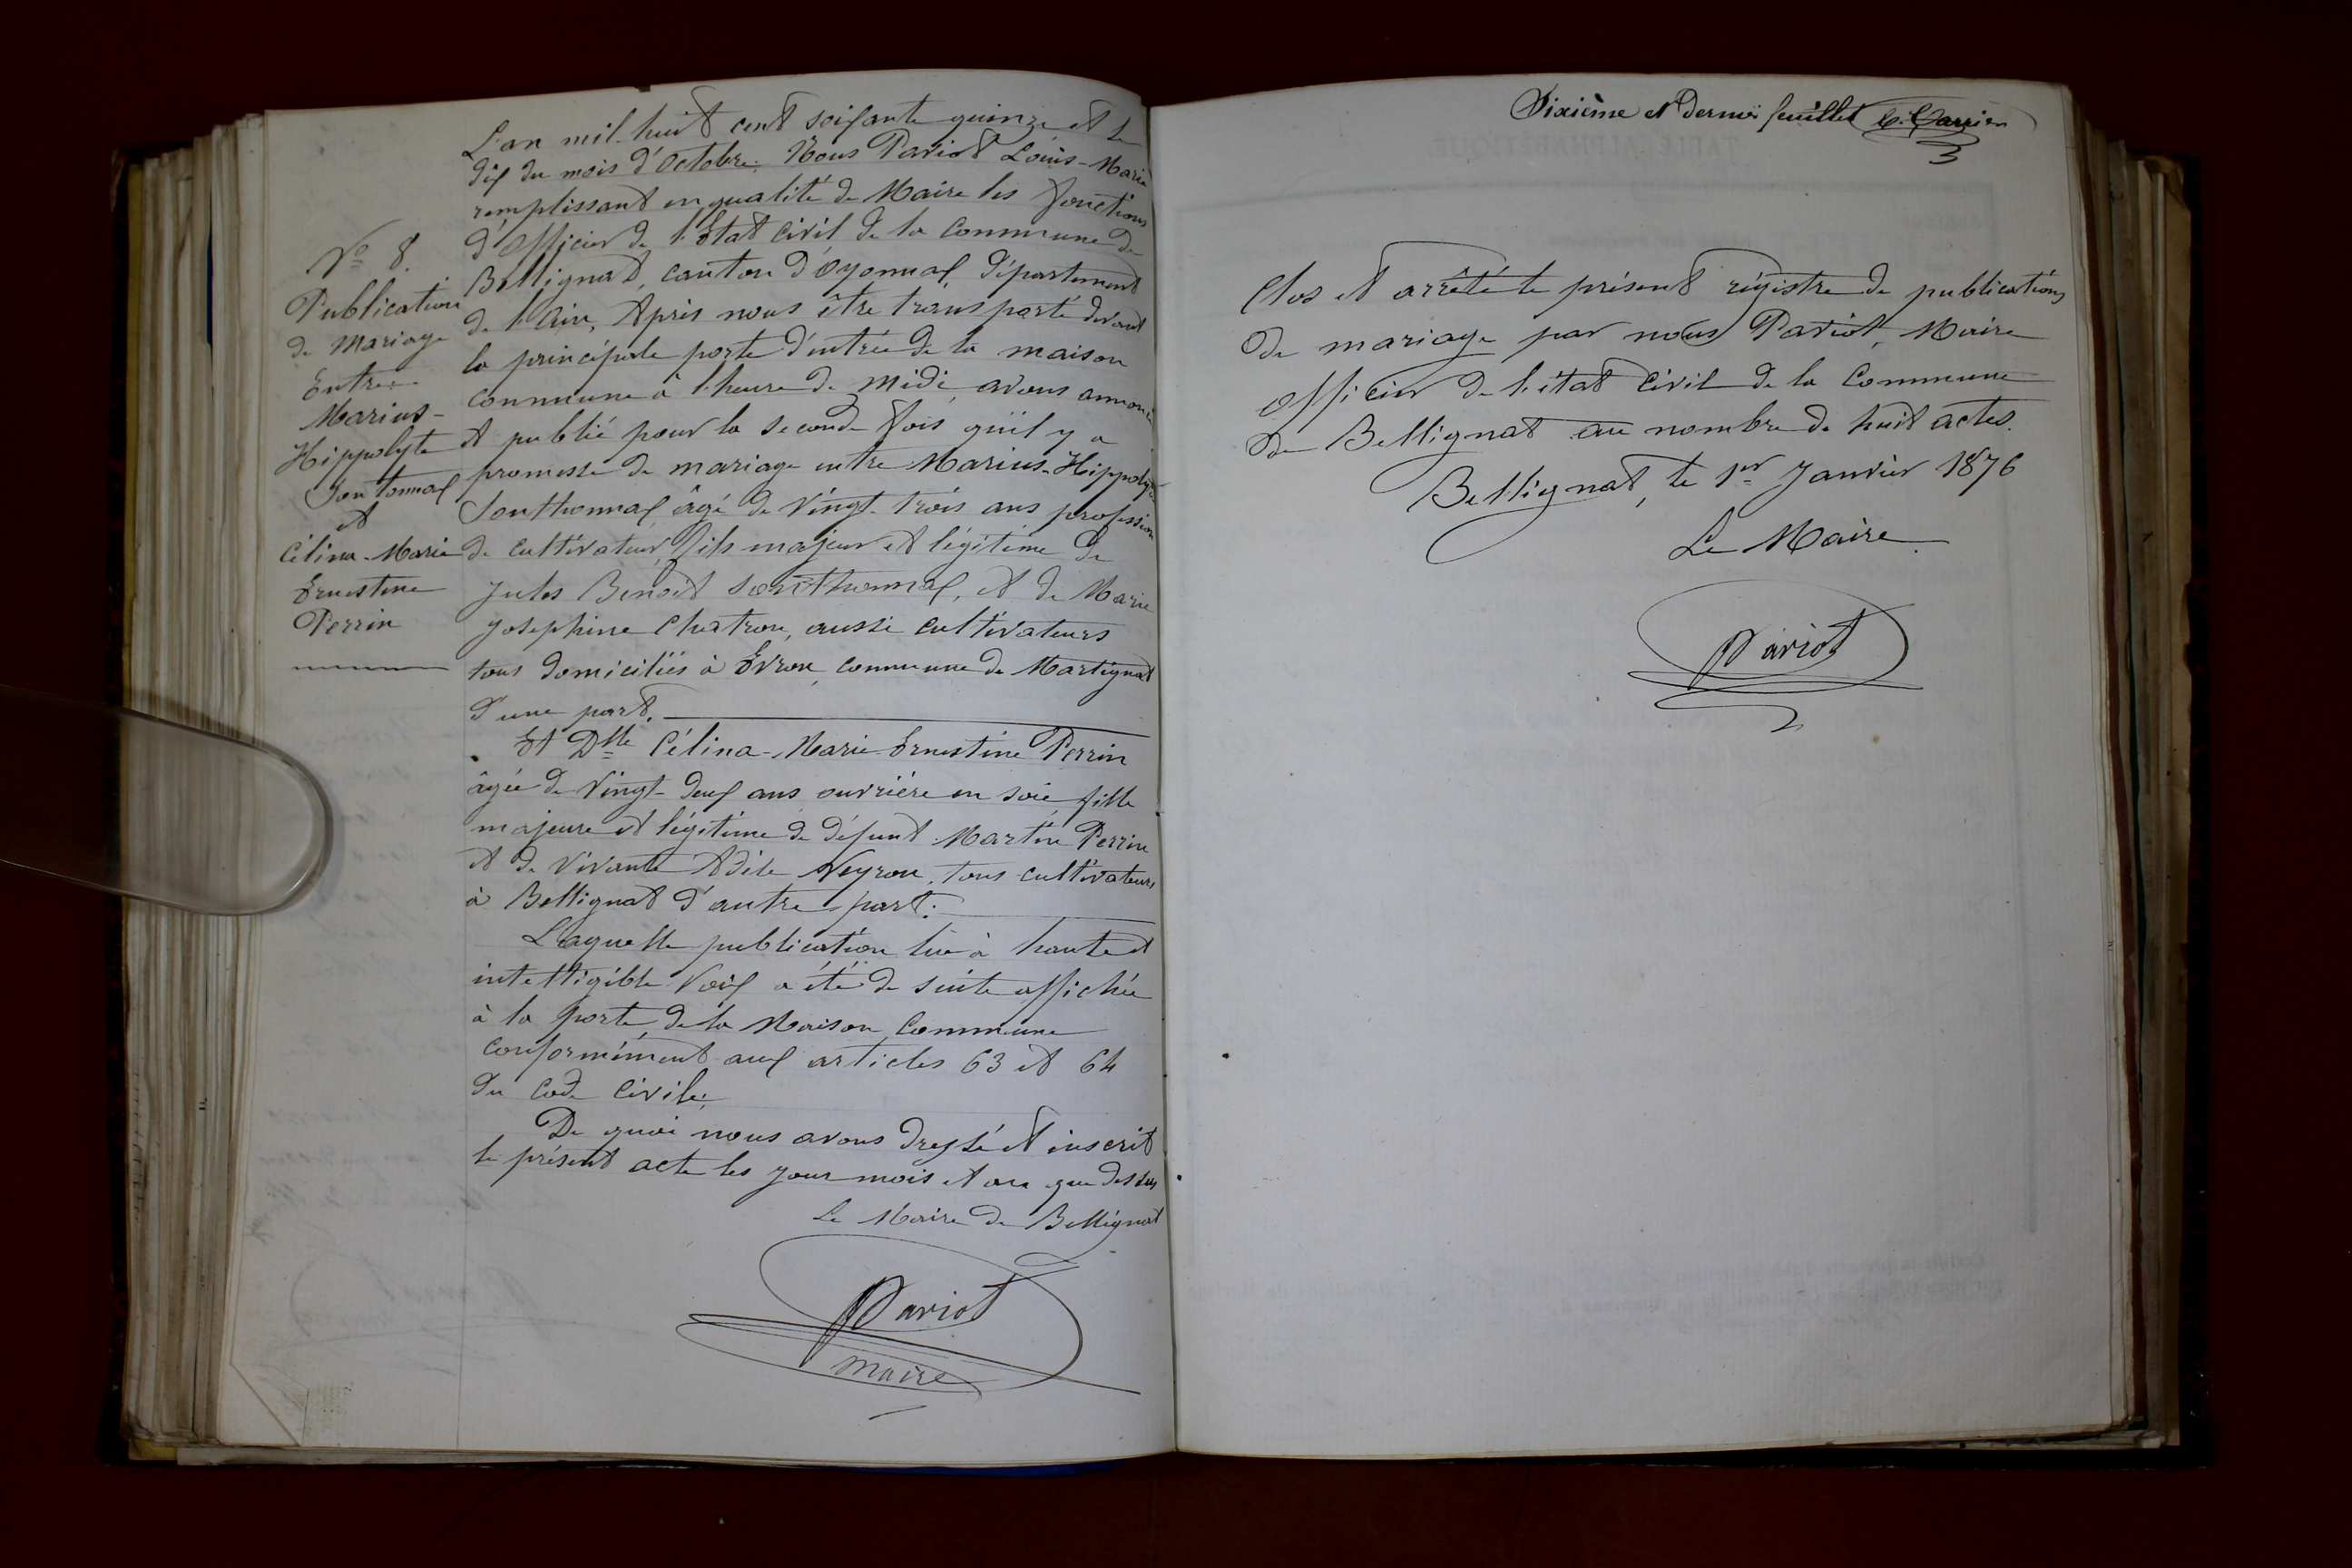 L'an mil-huit cent soixante quinze et le
dix du mois d'Octobre. Nous Pariot Louis-Marie
remplissant en qualité de Maire les fonctions
d'Officier de l'Etat Civil de la Commune de
Bellignat, canton d'Oyonnax, département
de l'Ain, Après nous être transporté devant
la principale porte d'entrée de la maison
commune à l'heure de midi, avons annoncé
et publié pour la seconde fois qu'il y a
promesse de mariage entre Marius-Hippolyte
Sonthonnax âgé de Vingt-trois ans profession
de cultivateur, fils majeur et légitime de
Jules Benoit Sonthonnax, et de Marie
Josephine Chatron, aussi cultivateurs
tous domiciliés à Evron, commune de Martignat
d'une part.
Et Dlle Célina-Marie-Ernestine Perrin
âgée de Vingt-deux ans ouvrière en soie, fille
majeure et légitime de défunt Martin Perrin
et de vivante Adile Neyron, tous cultivateurs
à Bellignat d'autre part.
Laquelle publication lue à haute et
intelligible Voix a été de suite affichée
à la porte de la Maison Commune
conformément aux articles 63 et 64
du Code Civile.
De quoi nous avons dressé et inscrit
le présent acte les jour mois et an que dessus
Le Maire de Bellignat
Pariot
maire
No 8.
Publication
de Mariage
Entre
Marius-
Hippolyte
Sontonnax
et
Célina-Marie
Ernestine
Perrin
Sixième et dernier feuillet
Clos et arrêté le présent régistre de publications
de mariage par nous Pariot, Maire
officier de l'état civil de la Commune
de Bellignat au nombre de huit actes.
Bellignat, le 1er Janvier 1876
Le Maire
Pariot